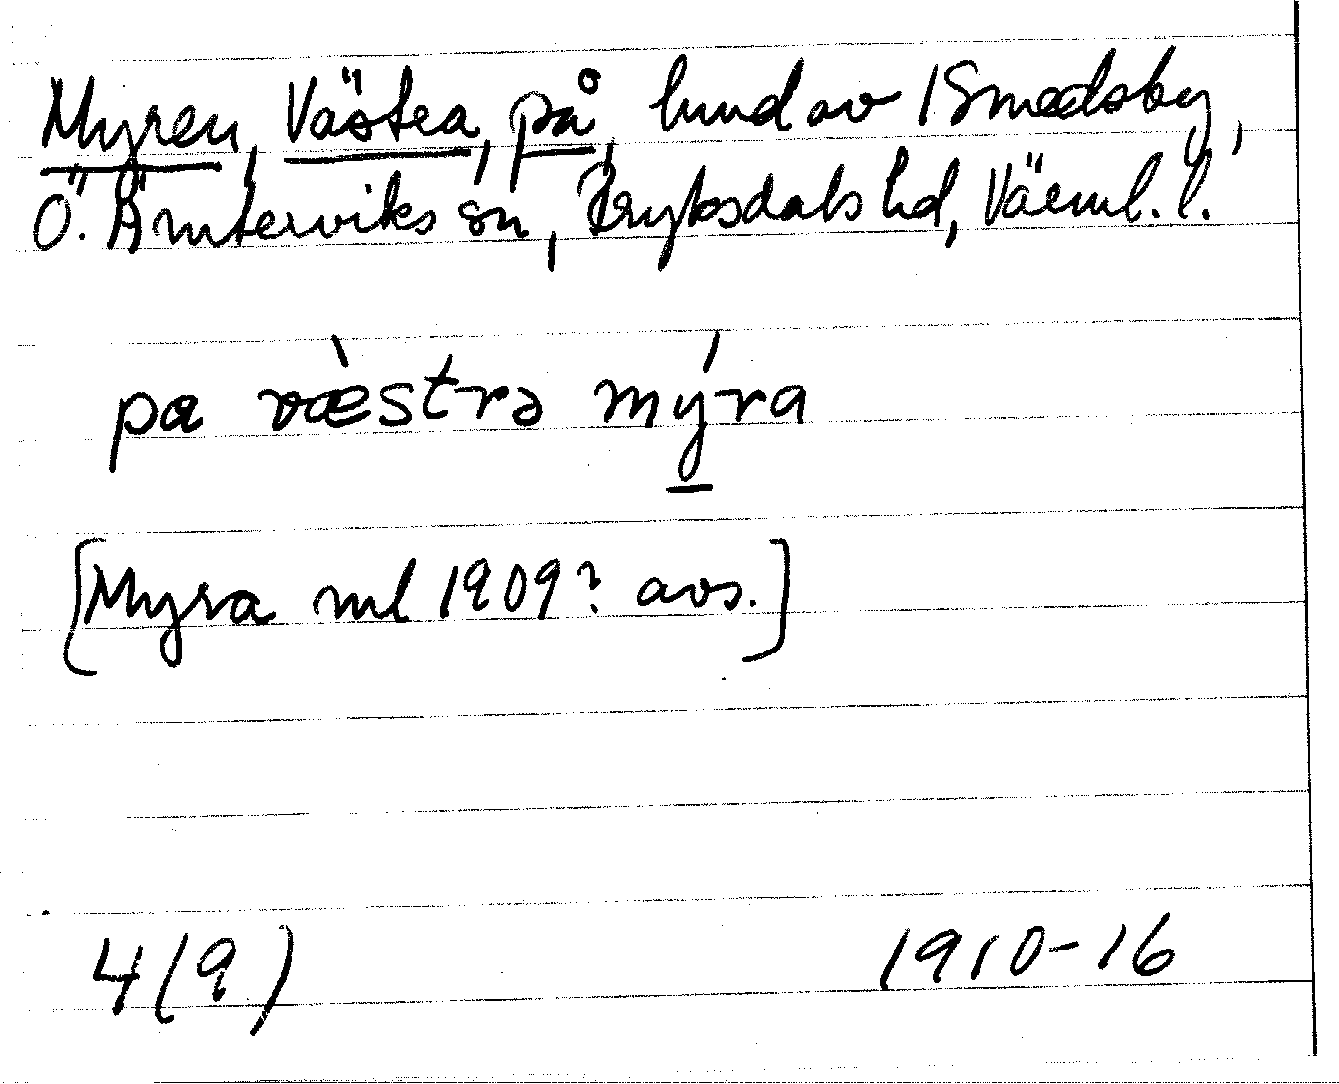 Myren, Västra, på, hmd av 1 Smedsby,
Ö. Ämterviks sn, Fryksdals hd, Värml. l.
pa væ̀strə mýra
[Myra ml 1909? avs.]
4(9) 1910-16